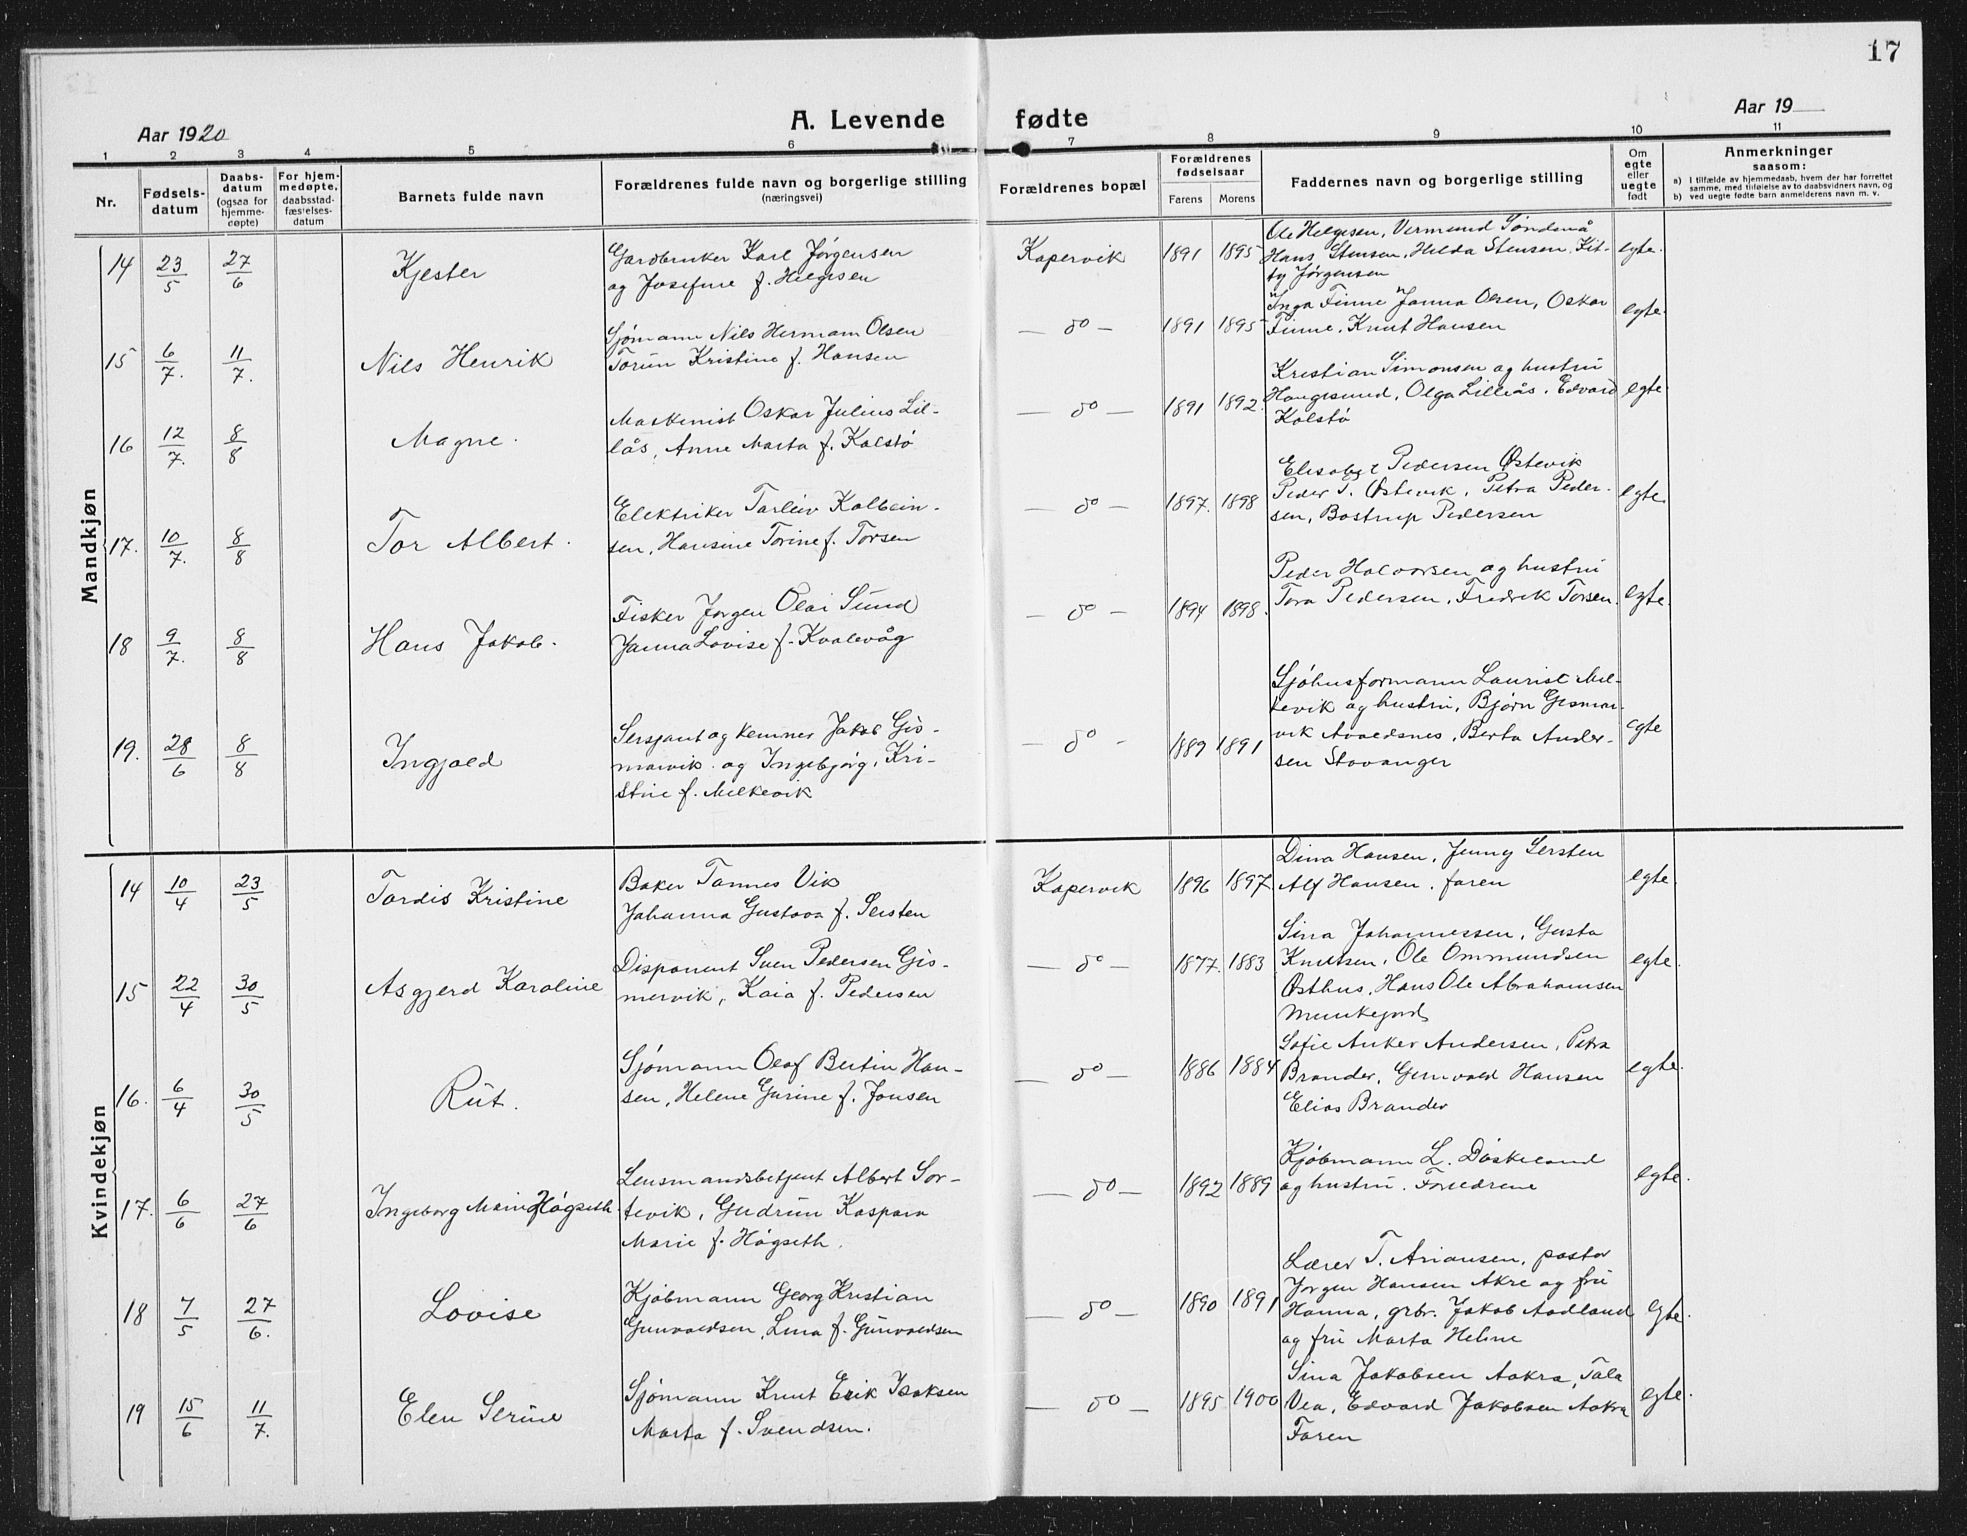 17
Aar 1920
A. Levende fødte
Aar 19
1 2 3 4 5 6 7 8 9 10 11
Nr.
Fødsels-
datum
Daabs-
datum
(ogsaa for
hjemme-
døpte)
For hjem-
medøpte,
daabsstad-
fæstelses-
datum
Barnets fulde navn
Forældrenes fulde navn og borgerlige stilling
(næringsvei)
Forældrenes bopæl
Forældrenes
fødselsaar
Farens Morens
Faddernes navn og borgerlige stilling
Om
egte
eller
uegte
født
Anmerkninger
saasom:
a) I tilfælde av hjemmedaab, hvem der har forrettet
samme, med tilføielse av to daabsvidners navn, og
b) ved uegte fødte barn anmelderens navn m. v.
Mandkjøn
14 23/5 27/6 Kjester
Gardbruker Karl Jørgensen
og Josefine f. Helgesen
Kopervik 1891 1895
Ole Helgesen, Vermund Tøndsnå
Hans Stensen, Helda Stensen, Kit-
ty Jørgensen
egte.
15 6/7. 11/7. Nils Henrik
Sjømann Nils Hermann Olsen
Torun Kristine f. Hansen
— do — 1891 1895
Inga Finne Janna Olsen, Oskar
Finne, Knut Hansen
egte.
16 12/7. 8/8 Magne.
Maskenist Oskar Julius Lil-
lås, Anne Marta f. Kolstø
— do — 1891 1892.
Kristian Simonsen og hustru
Haugesund, Olga Lillås, Edvard
Kolstø
egte
17. 10/7. 8/8 Tor Albert.
Elektriker Torleiv Kolbein-
sen, Hansine Torine f. Torsen
— do — 1897. 1898
Elisabet Pedersen Østevik
Peder T. Østevik, Petra Peder-
sen, Bostrup Pedersen
egte.
18 9/7. 8/8 Hans Jakob.
Fisker Jørgen Olai Sund
Janna Lovise f. Kvalevåg
— do — 1894 1898.
Peder Halvorsen og hustru
Tora Pedersen, Fredrik Torsen.
egte.
19. 28/6 8/8 Ingjald
Sersjant og kemner Jakob Gis-
marvik og Ingebjørg, Kri-
stine f. Melkevik
— do — 1889 1891
Sjøhusformann Laurist Mel-
kevik og hustru, Bjørn Gismar-
vik Avaldsnes, Berta Ander-
sen Stavanger
egte
Kvindekjøn
14 10/4 23/5 Tordis Kristine
Baker Tønnes Vik
Johanna Gustava f. Sersten
Kopervik 1896 1897.
Dina Hansen, Jenny Sersten
Alf Hansen. faren
egte.
15 22/4 30/5 Asgjerd Karoline
Disponent Sven Pedersen Gis-
mervik, Kaia f. Pedersen
— do — 1877. 1883
Sina Johannessen, Gusta
Knutsen, Ole Ommundsen
Østhus, Hans Ole Abrahamsen
Munkejord
egte.
16. 6/4 30/5 Rut.
Sjømann Olaf Bertin Han-
sen, Helene Gurine f. Jonsen
— do — 1886 1884
Sofie Anker Andersen, Petra
Brander, Gunvald Hansen
Elias Brander
egte.
17. 6/6 27/6 Ingeborg Marie Høgseth.
Lensmandsbetjent Albert Sor-
tevik, Gudrun Kaspara
Marie f. Høgseth.
— do — 1892 1889
Kjøbmann L. Døskeland
og hustru. Foreldrene
egte.
18 7/5 27/6. Lovise
Kjøbmann Georg Kristian
Gunvaldsen, Lina f. Gunvaldsen
— do — 1890 1891
Lærer T. Ariansen, pastor
Jørgen Hansen Akre og fru
Hanna, grbr. Jakob Aadland
og fru Marta Heline
egte.
19 15/6 11/7. Elen Serine
Sjømann Knut Erik Isaksen
Marta f. Svendsen.
— do — 1895 1900
Sina Jakobsen Aakra, Tala
Vea, Edvard Jakobsen Aakra
Faren
egte.